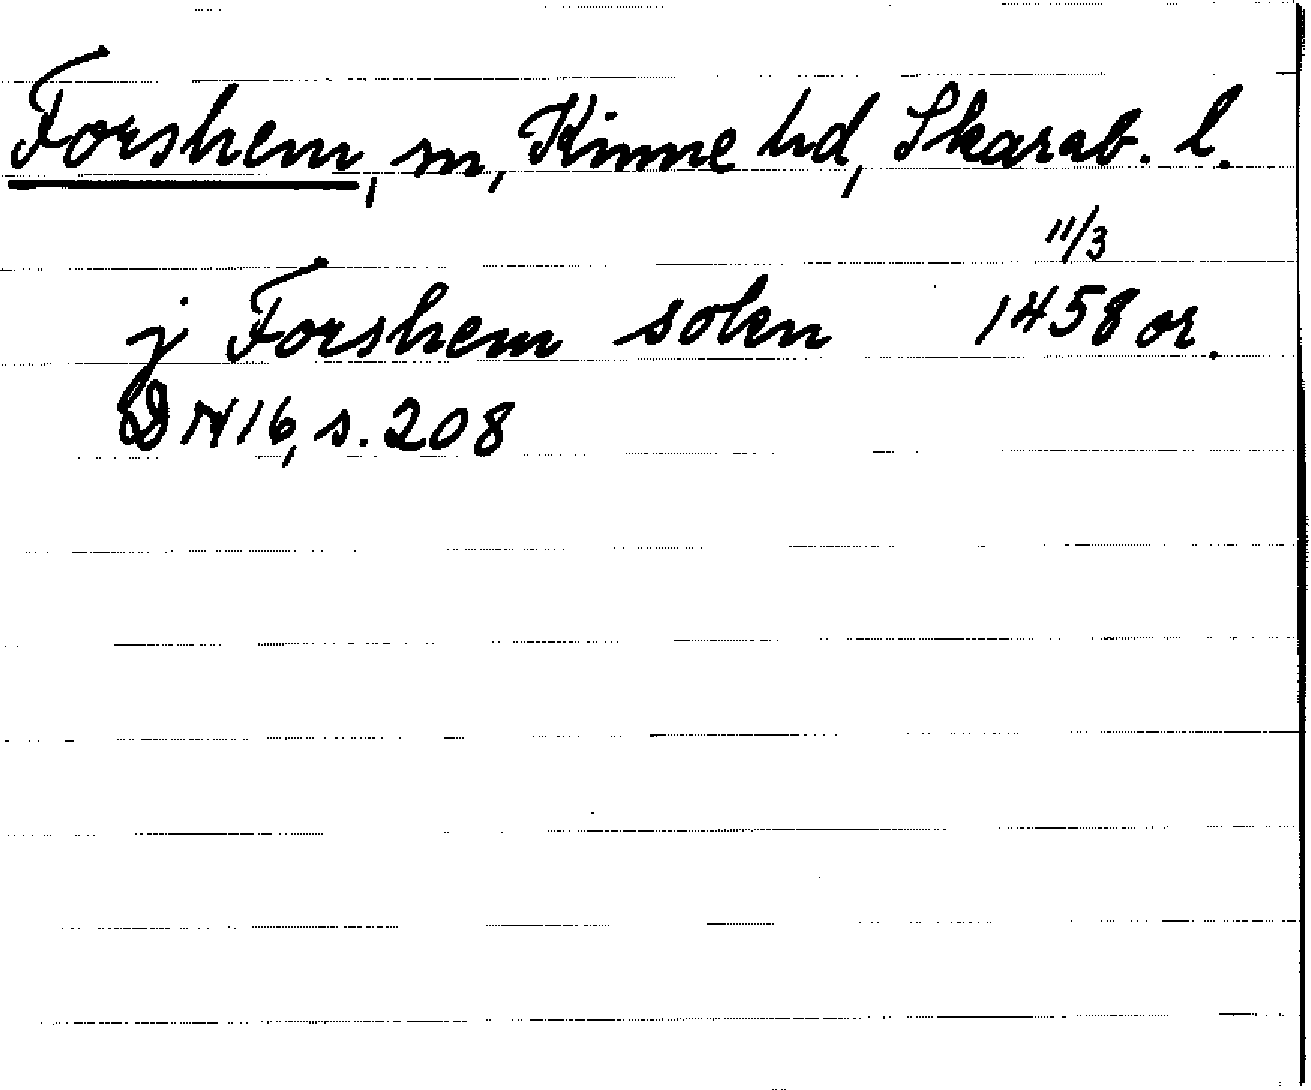 Forshem, sn, Kinne hd, Skarab. l.
11/3
j Forshem sokn 1458 or.
DN 16, s. 208